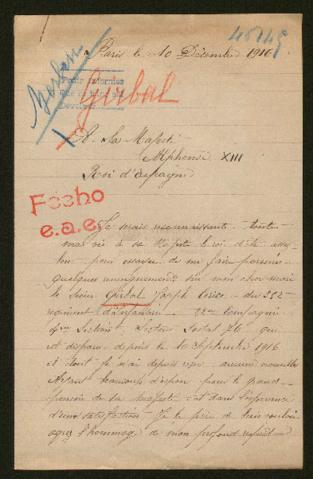 45145
Paris le 10 Décembre 1916
Girbal
Girbal
A Sa Majesté
Alphonse XIII
Roi d'Espagne
Fecho
e.a.e.
Je serais reconnaissante toute
ma vie à sa Majesté le roi d'être assez
bon pour essayer de me faire parvenir
quelques renseignements sur mon cher mari
le Sieur Girbal Joseph du
régiment d'infanterie 22me Compagnie
4me Section Secteur Postal 76 qui
est disparu depuis le 10 Septembre 1916
et dont je n'ai depuis reçu aucune nouvelle
Ayant beaucoup d'espoir pour la grande
de sa majesté et dans
d'une satisfaction Je le prie de bien vouloir
agréer l'hommage de mon profond respect